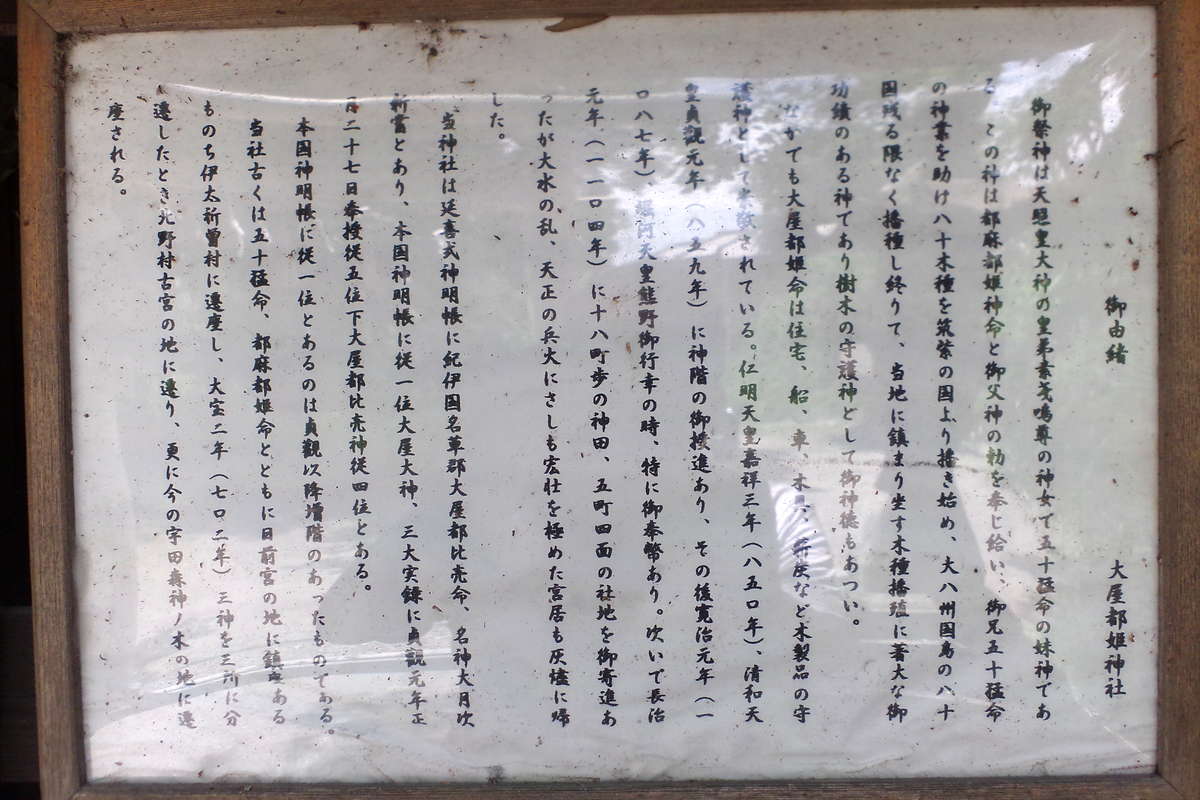 御由緒　大屋都姫神社
御祭神は天照皇大神の皇弟素戔嗚尊の神女で五十猛命の妹神であ
る。この神は都麻都姫神命と御父神の勅を奉じ給い、御兄五十猛命
の神業を助け八十木種を筑紫の国より播き始め、大八州国島の八十
国残る隈なく播種し終りて、当地に鎮まり坐す木種播殖に著大な御
功績のある神であり樹木の守護神として御神徳もあつい。
なかでも大屋都姫命は住宅、船、車、木具、薪炭など木製品の守
護神として末敬されている。仁明天皇嘉祥三年（八五〇年）、清和天
皇貞観元年（八五九年）に神階の御授進あり、その後寛治元年（一
〇八七年）、堀河天皇熊野御行幸の時、特に御奉幣あり。次いで長治
元年（一一〇四年）に十八町歩の神田、五町四面の社地を御寄進あ
ったが大水の乱、天正の兵火にさしも宏壮を極めた宮居も灰燼に帰
した。
当神社は延喜式神明帳に紀伊国名草郡大屋都比売命、名神大月次
新嘗とあり、本国神明帳に従一位大屋大神、三大実録に貞観元年正
月二十七日奉授従五位下大屋都比売神従四位とある。
本国神明帳に従一位とあるのは貞観以降増階のあったものである。
当社古くは五十猛命、都麻都姫命とともに日前宮の地に鎮座ある
ものち伊太祈曽村に遷座し、大宝二年（七〇二年）三神を三所に分
遷したとき北野村古宮の地に遷り、更に今の宇田森神ノ木の地に遷
座される。